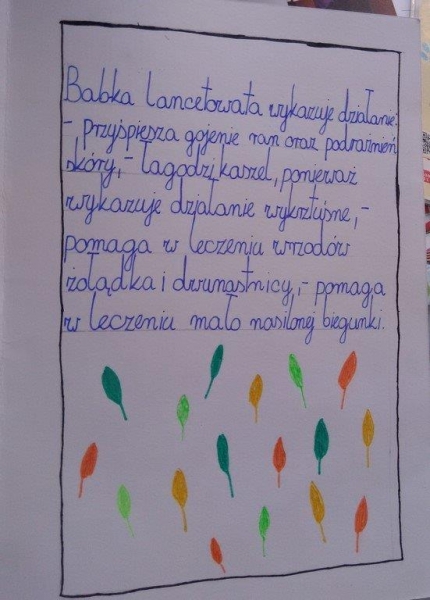 Babka lancetowata wykazuje działanie:
- przyśpiesza gojenie ran oraz podrażnień
skóry,- łagodzi kaszel, ponieważ
wykazuje działanie wykrztuśne,-
pomaga w leczeniu wrzodów
żołądka i dwunastnicy,- pomaga
w leczeniu mało nasilonej biegunki.